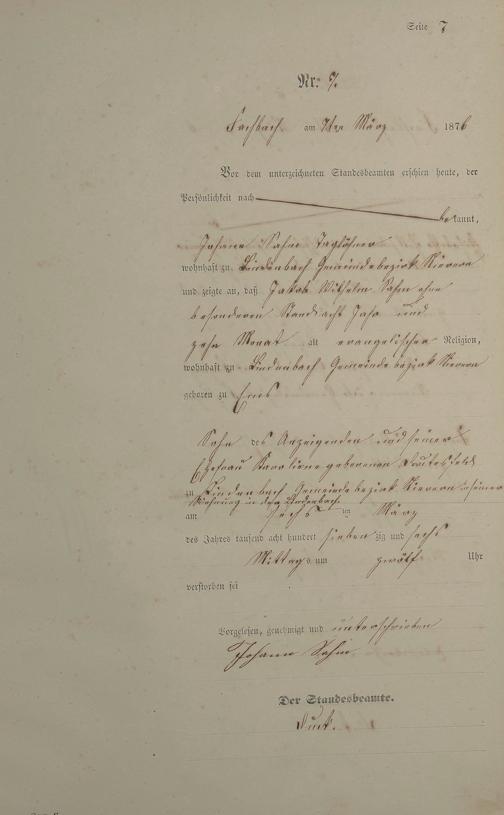 Seite 7
Nr. 7.
Fachbach am 7ten März 1876
Vor dem unterzeichneten Standesbeamten erschien heute, der
Persönlichkeit nach
bekannt,
Johann Sahm Taglöhner
wohnhaft zu Lindenbach Gemeindebezirk Nievern
und zeigte an, daß Jakob Wilhelm Sahm ohne
besonderen Stand acht Jahr und
zehn Monat alt evangelischer Religion,
wohnhaft zu Lindenbach Gemeindebezirk Nievern
geboren zu Ems
Sohn des Anzeigenden und seiner
Ehefrau Karoline geborenen
zu Lindenbach Gemeindebezirk Nievern in seiner
Wohnung in der Lindenbach
am sechs ten März
des Jahres tausend acht hundert siebenzig und sechs
Mittags um zwölf Uhr
verstorben sei
Vorgelesen, genehmigt und unterschrieben
Johann Sahm
Der Standesbeamte.